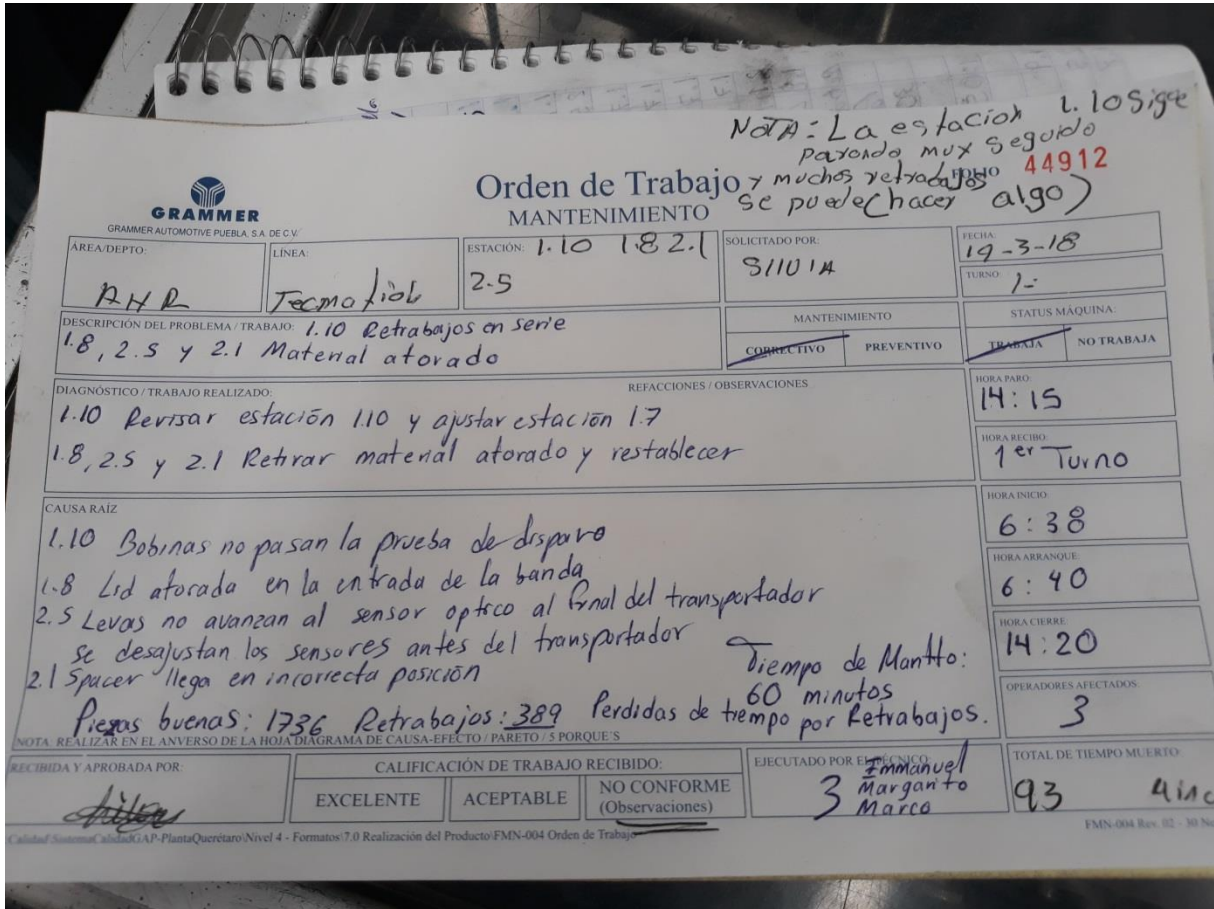 NOTA: La estación 1.10 Sigue
parando muy seguido
y muchos retrabajos
se puede (hacer algo)
FOLIO 44912
GRAMMER
GRAMMER AUTOMOTIVE PUEBLA, S.A. DE C.V.
Orden de Trabajo
MANTENIMIENTO
ÁREA/DEPTO:
AHR
LÍNEA:
Tecmatiol
ESTACIÓN: 1.10 1.8 2.1
2.5
SOLICITADO POR:
SIIUIA
FECHA:
19-3-18
TURNO:
1-
DESCRIPCIÓN DEL PROBLEMA / TRABAJO: 1.10 Retrabajos en serie
1.8, 2.5 y 2.1 Material atorado
MANTENIMIENTO
CORRECTIVO PREVENTIVO
STATUS MÁQUINA:
TRABAJA NO TRABAJA
DIAGNÓSTICO / TRABAJO REALIZADO: REFACCIONES / OBSERVACIONES
1.10 Revisar estación 1.10 y ajustar estación 1.7
1.8, 2.5 y 2.1 Retirar material atorado y restablecer
HORA PARO:
14:15
HORA RECIBO:
1er Turno
CAUSA RAÍZ
1.10 Bobinas no pasan la prueba de disparo
1.8 Lid atorada en la entrada de la banda
2.5 Levas no avanzan al sensor optico al final del transportador
se desajustan los sensores antes del transportador
2.1 Spacer llega en incorrecta posición
Tiempo de Mantto:
60 minutos
Piezas buenas: 1736 Retrabajos: 389 Perdidas de tiempo por Retrabajos.
HORA INICIO:
6:38
HORA ARRANQUE:
6:40
HORA CIERRE:
14:20
OPERADORES AFECTADOS:
3
NOTA: REALIZAR EN EL ANVERSO DE LA HOJA DIAGRAMA DE CAUSA-EFECTO / PARETO / 5 PORQUE'S
RECIBIDA Y APROBADA POR:
CALIFICACIÓN DE TRABAJO RECIBIDO:
EXCELENTE ACEPTABLE NO CONFORME
(Observaciones)
EJECUTADO POR EL TÉCNICO:
3 Emmanuel
Margarito
Marco
TOTAL DE TIEMPO MUERTO:
93
Calidad\SistemaCalidadGAP-PlantaQuerétaro\Nivel 4 - Formatos\7.0 Realización del Producto\FMN-004 Orden de Trabajo
FMN-004 Rev. 02 - 30 No